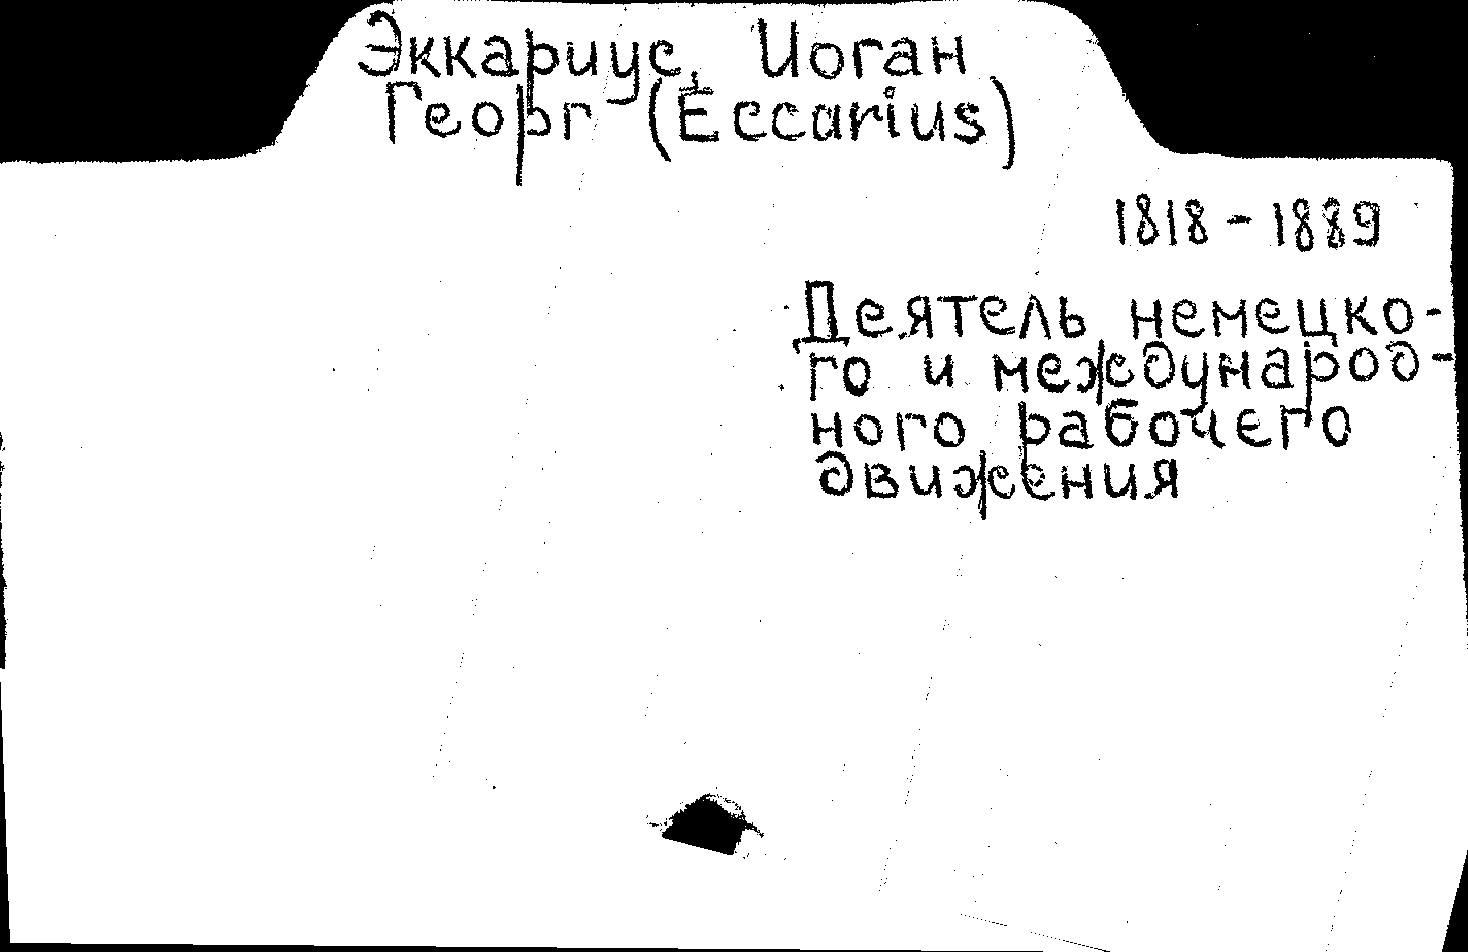 Эккариус, Иоган
Георг (Eccarius)
1818 - 1889
Деятель немецко-
го и международ-
ного рабочего
движения